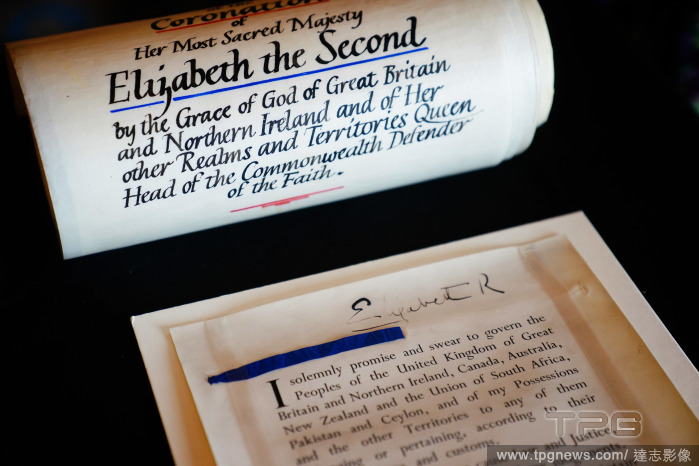 Coronation
Her Most Sacred Majesty
Elizabeth the Second
by the Grace of God of Great Britain
and Northern Ireland and of Her
other Realms and Territories Queen
Head of the Commonwealth Defender
of the Faith.
Elizabeth R
I solemnly promise and swear to govern the
Peoples of the United Kingdom of Great
Britain and Northern Ireland, Canada, Australia,
New Zealand and the Union of South Africa,
Pakistan and Ceylon, and of my Possessions
and the other Territories to any of them
belonging or pertaining, according to their
and customs.
and Justice
TPG
www.tpgnews.com/達志影像